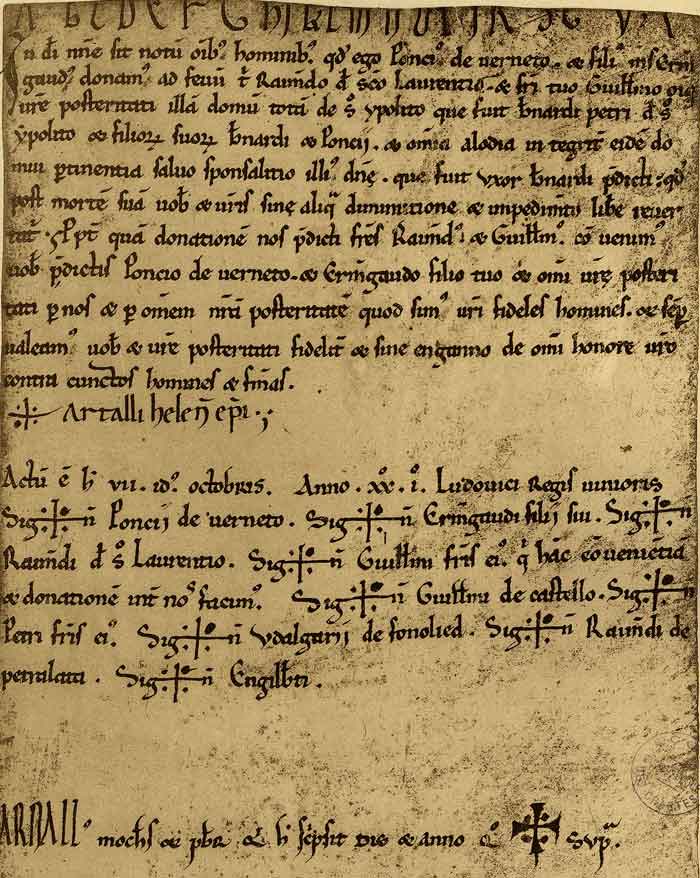 A B C D E F G H I K L M N O P Q R S T V X
In dī nn̄e sit notū oīb' hominib' qd' ego Ponci' de verneto. & fili' m's Erm̄
gaud' donam' ad feuū t̄ Raim̄do d̄ sc̄o Laurentio. & fr̄i tuo Guilłmo
ur̄e posteritati illā domū totā de s̄ ypolito que fuit b̄nardi petri d̄ s̄
ypolito & filioꝝ suoꝝ b̄nardi & Poncij. & om̄ia alodia in tegrit̄ eidē do
mui ꝑtinentia saluo sponsalitio illi' dn̄ę. que fuit vxor b̄nardi p̄dicti. qd'
post mortē suā uob̄ & ur̄is sine aliq̄ diminutione & inpedimto lib̄e reuer
tat̄. Ppt̄ quā donationē nos p̄dicti fr̄es Raim̄d' & Guilłm' cō uenim'
uob̄ p̄dictis Poncio de verneto. & Erm̄gaudo filio tuo & om̄i ur̄ę posteri
tati ꝑ nos & ꝑ om̄em nr̄ā posteritatē quod sim' ur̄i fideles homines. & sēꝑ
ualeam' uob̄ & ur̄e posteritati fidelit̄ & sine enganno de om̄i honore ur̄o
contra cunctos homines & fēinas.
Artalli helen̄ ep̄i.
Actū ē h̄ vii. id' octobris. Anno. xx. i°. Ludouici Regis iunioris
Sig n̄ Poncij de verneto. Sig n̄ Erm̄gaudi filij sui. Sig n̄
Raim̄di d̄ s̄ Laurentio. Sig n̄ Guilłmi fr̄is ei'. q̄ hāc cōuenientiā
& donationē int̄ nos facim'. Sig n̄ Guilłmi de castello. Sig n̄
Petri fr̄is ei'. Sig n̄ Vdalgarij de fonolled. Sig n̄ Raim̄di de
petralata. Sig n̄ Engilb̄ti.
ARNALL' moch̄s & pb̄r h̄ sc̄psit die & anno Sup̄.